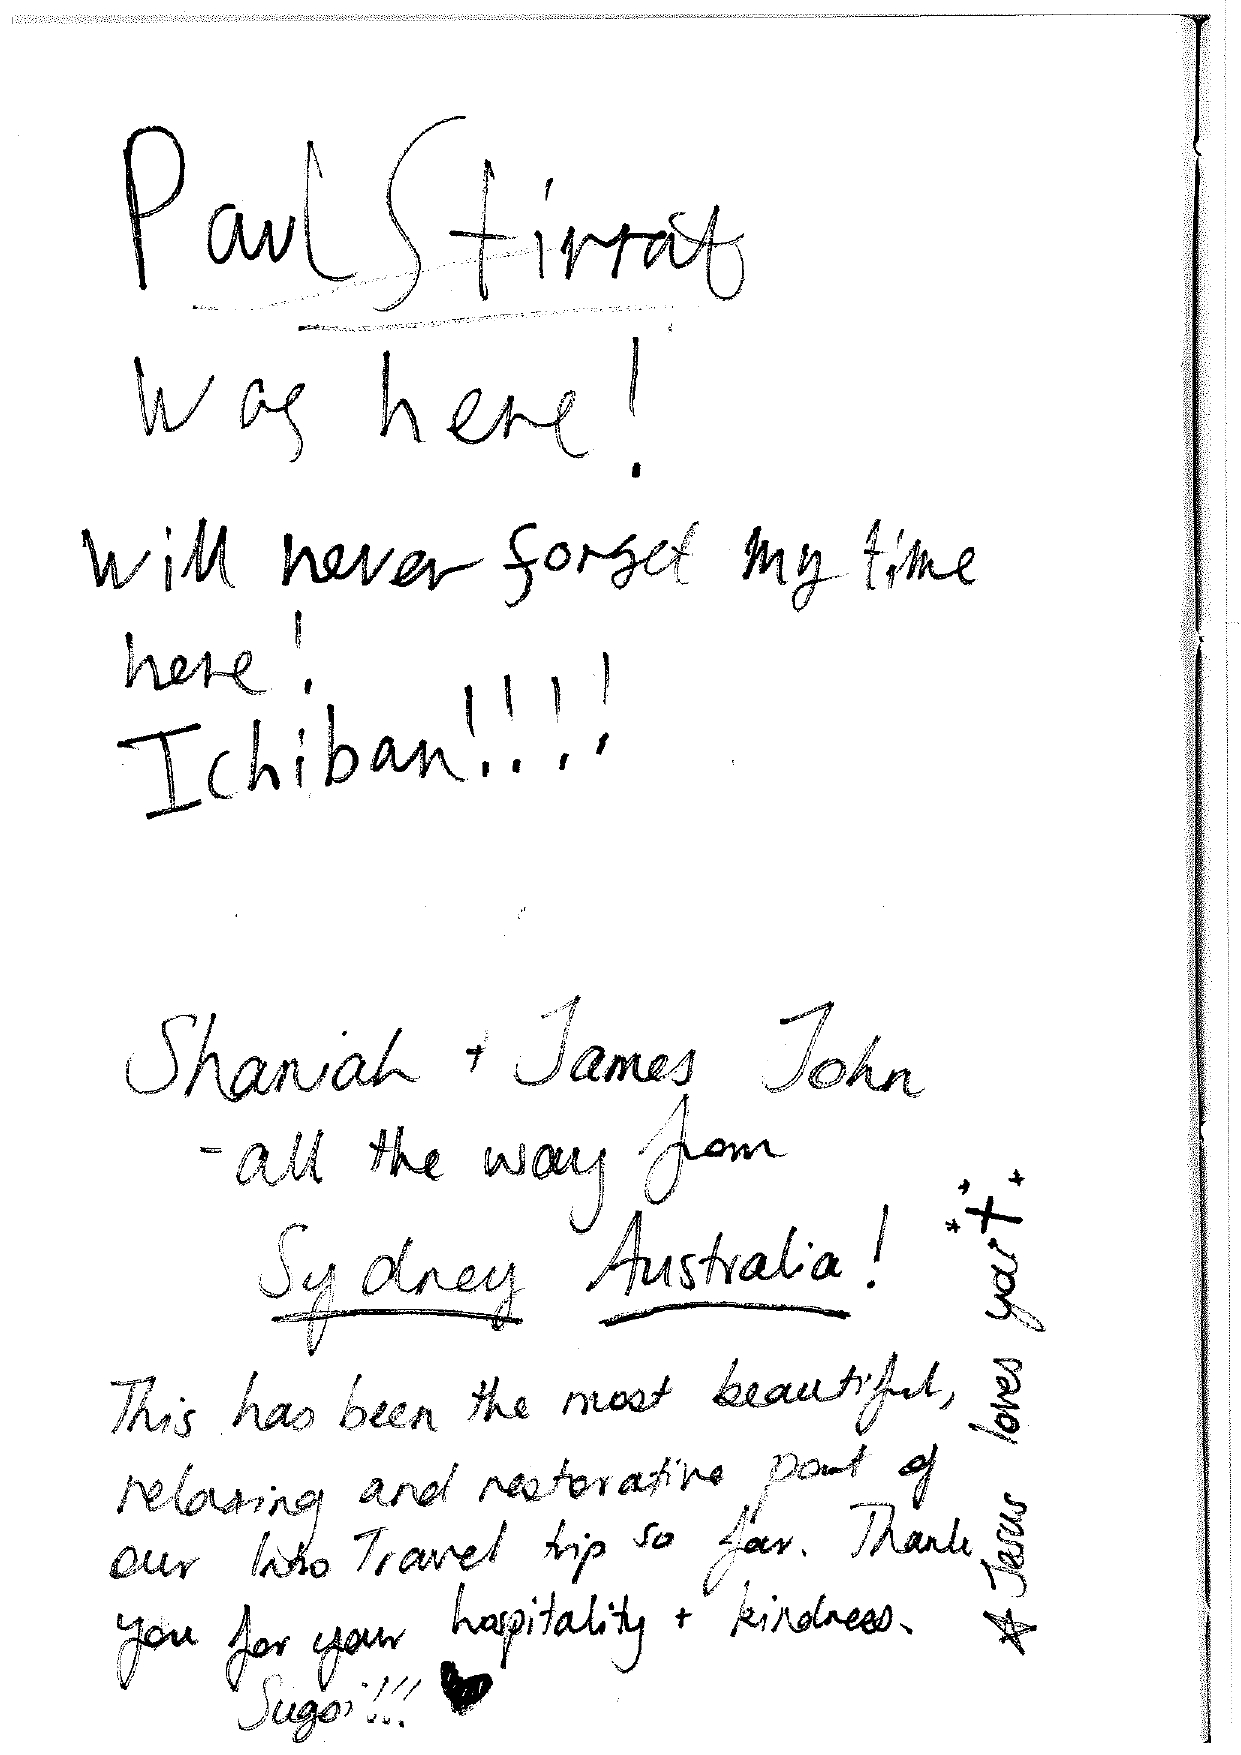 Paul Stirrat
was here!
Will never forget my time
here!
Ichiban!!!!
Shaniah + James John
- all the way from
Sydney Australia!
This has been the most beautiful,
relaxing and restorative part of
our Intro Travel trip so far. Thank
you for your hospitality + kindness.
Sugoi!!!
Jesus loves you